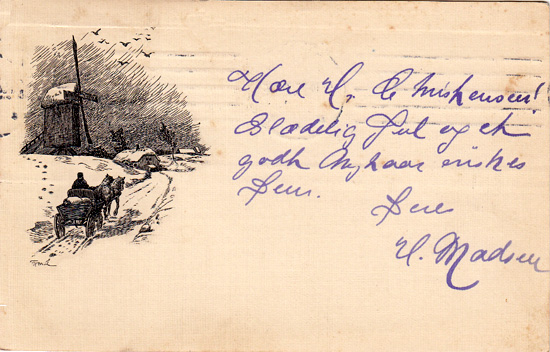 Kære H. Christensen!
Glædelig Jul og et
godt Nytaar ønskes
Dem.
Deres
H. Madsen